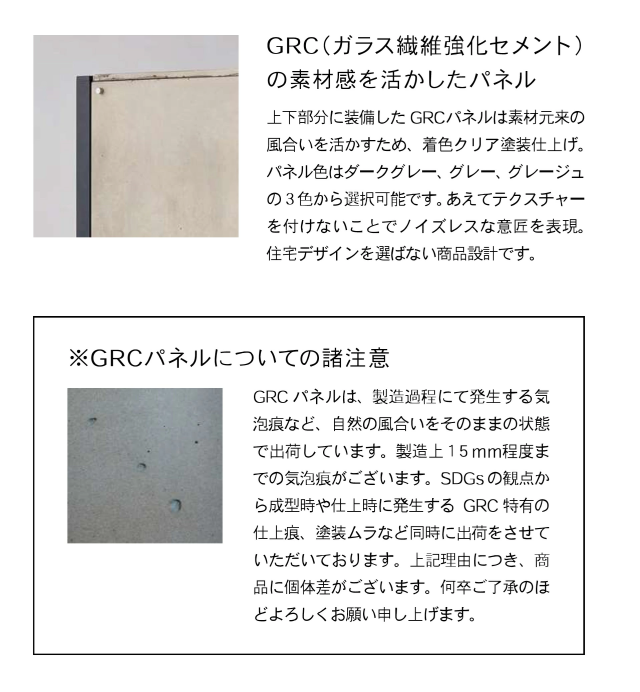 GRC（ガラス繊維強化セメント）
の素材感を活かしたパネル
上下部分に装備した GRCパネルは素材元来の
風合いを活かすため、着色クリア塗装仕上げ。
パネル色はダークグレー、グレー、グレージュ
の3色から選択可能です。あえてテクスチャー
を付けないことでノイズレスな意匠を表現。
住宅デザインを選ばない商品設計です。
※GRCパネルについての諸注意
GRC パネルは、製造過程にて発生する気
泡痕など、自然の風合いをそのままの状態
で出荷しています。製造上15mm程度ま
での気泡痕がございます。SDGsの観点か
ら成型時や仕上時に発生する GRC 特有の
仕上痕、塗装ムラなど同時に出荷をさせて
いただいております。上記理由につき、商
品に個体差がございます。何卒ご了承のほ
どよろしくお願い申し上げます。